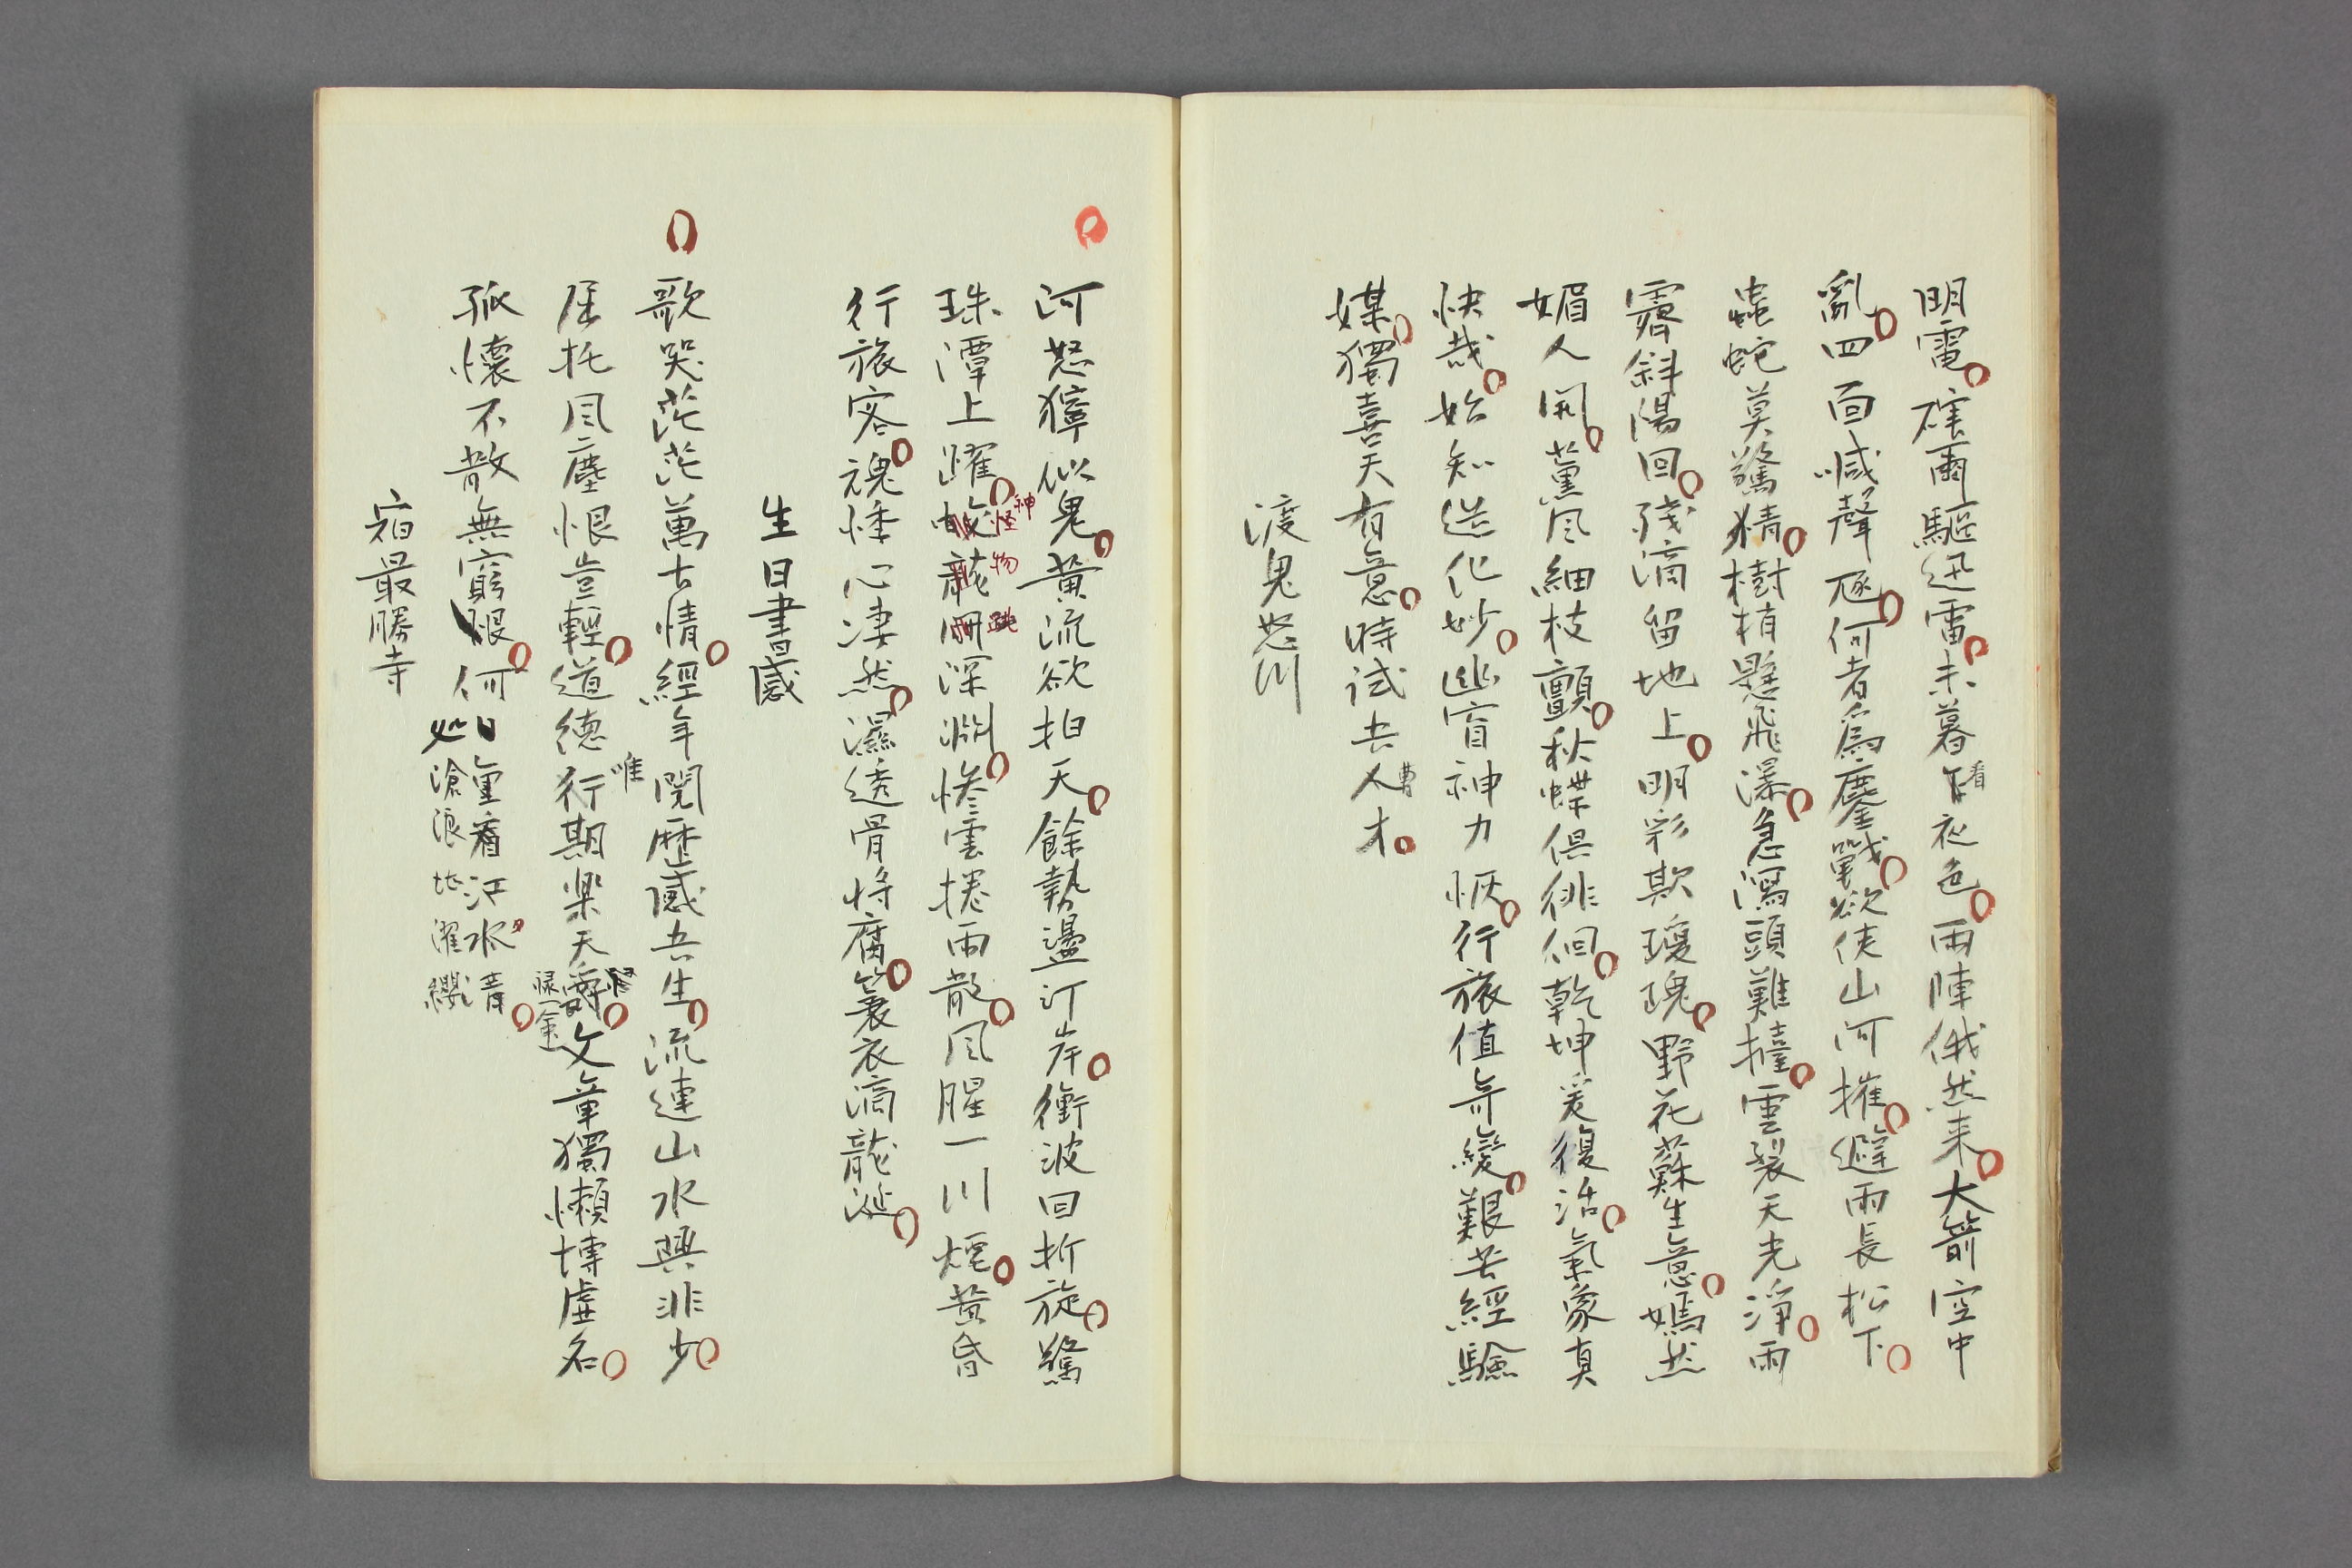 明電磕爾驅迅雷未暮看夜色雨陣俄然来大箭空中
亂四面喊聲豗何者為鏖戰欲使山河摧避雨長松下
蟲蛇莫驚猜樹梢懸飛瀑急瀉頭難擡雲裂天光淨雨
霽斜陽回残滴留地上明彩欺瓊瑰野花蘇生意嫣然
媚人開薫风細枝顫秋蝶俱徘徊乾坤爰復活氣象真
快哉始知造化妙幽窅神力恢行旅值奇變艱苦經驗
媒獨喜天有意時試吾人曹才
渡鬼怒川
河怒獰似鬼黄流欲拍天餘勢盪汀岸衝波回折旋驚
珠潭上躍蛟龍開深淵惨雲捲雨散风腥一川煙黄昏
神怪物跳
行旅客魂悸心凄然濕透骨将腐簑衣滴龍涎
生日書感
歌哭茫茫萬古情經年閲歴感吾生流連山水興非少
唯
屈托风塵恨豈輕道德行期楽天爵文章獨懶博虚名
禄
孤懷不散無窮限何日重看江水清
処滄浪地濯纓
宿最勝寺